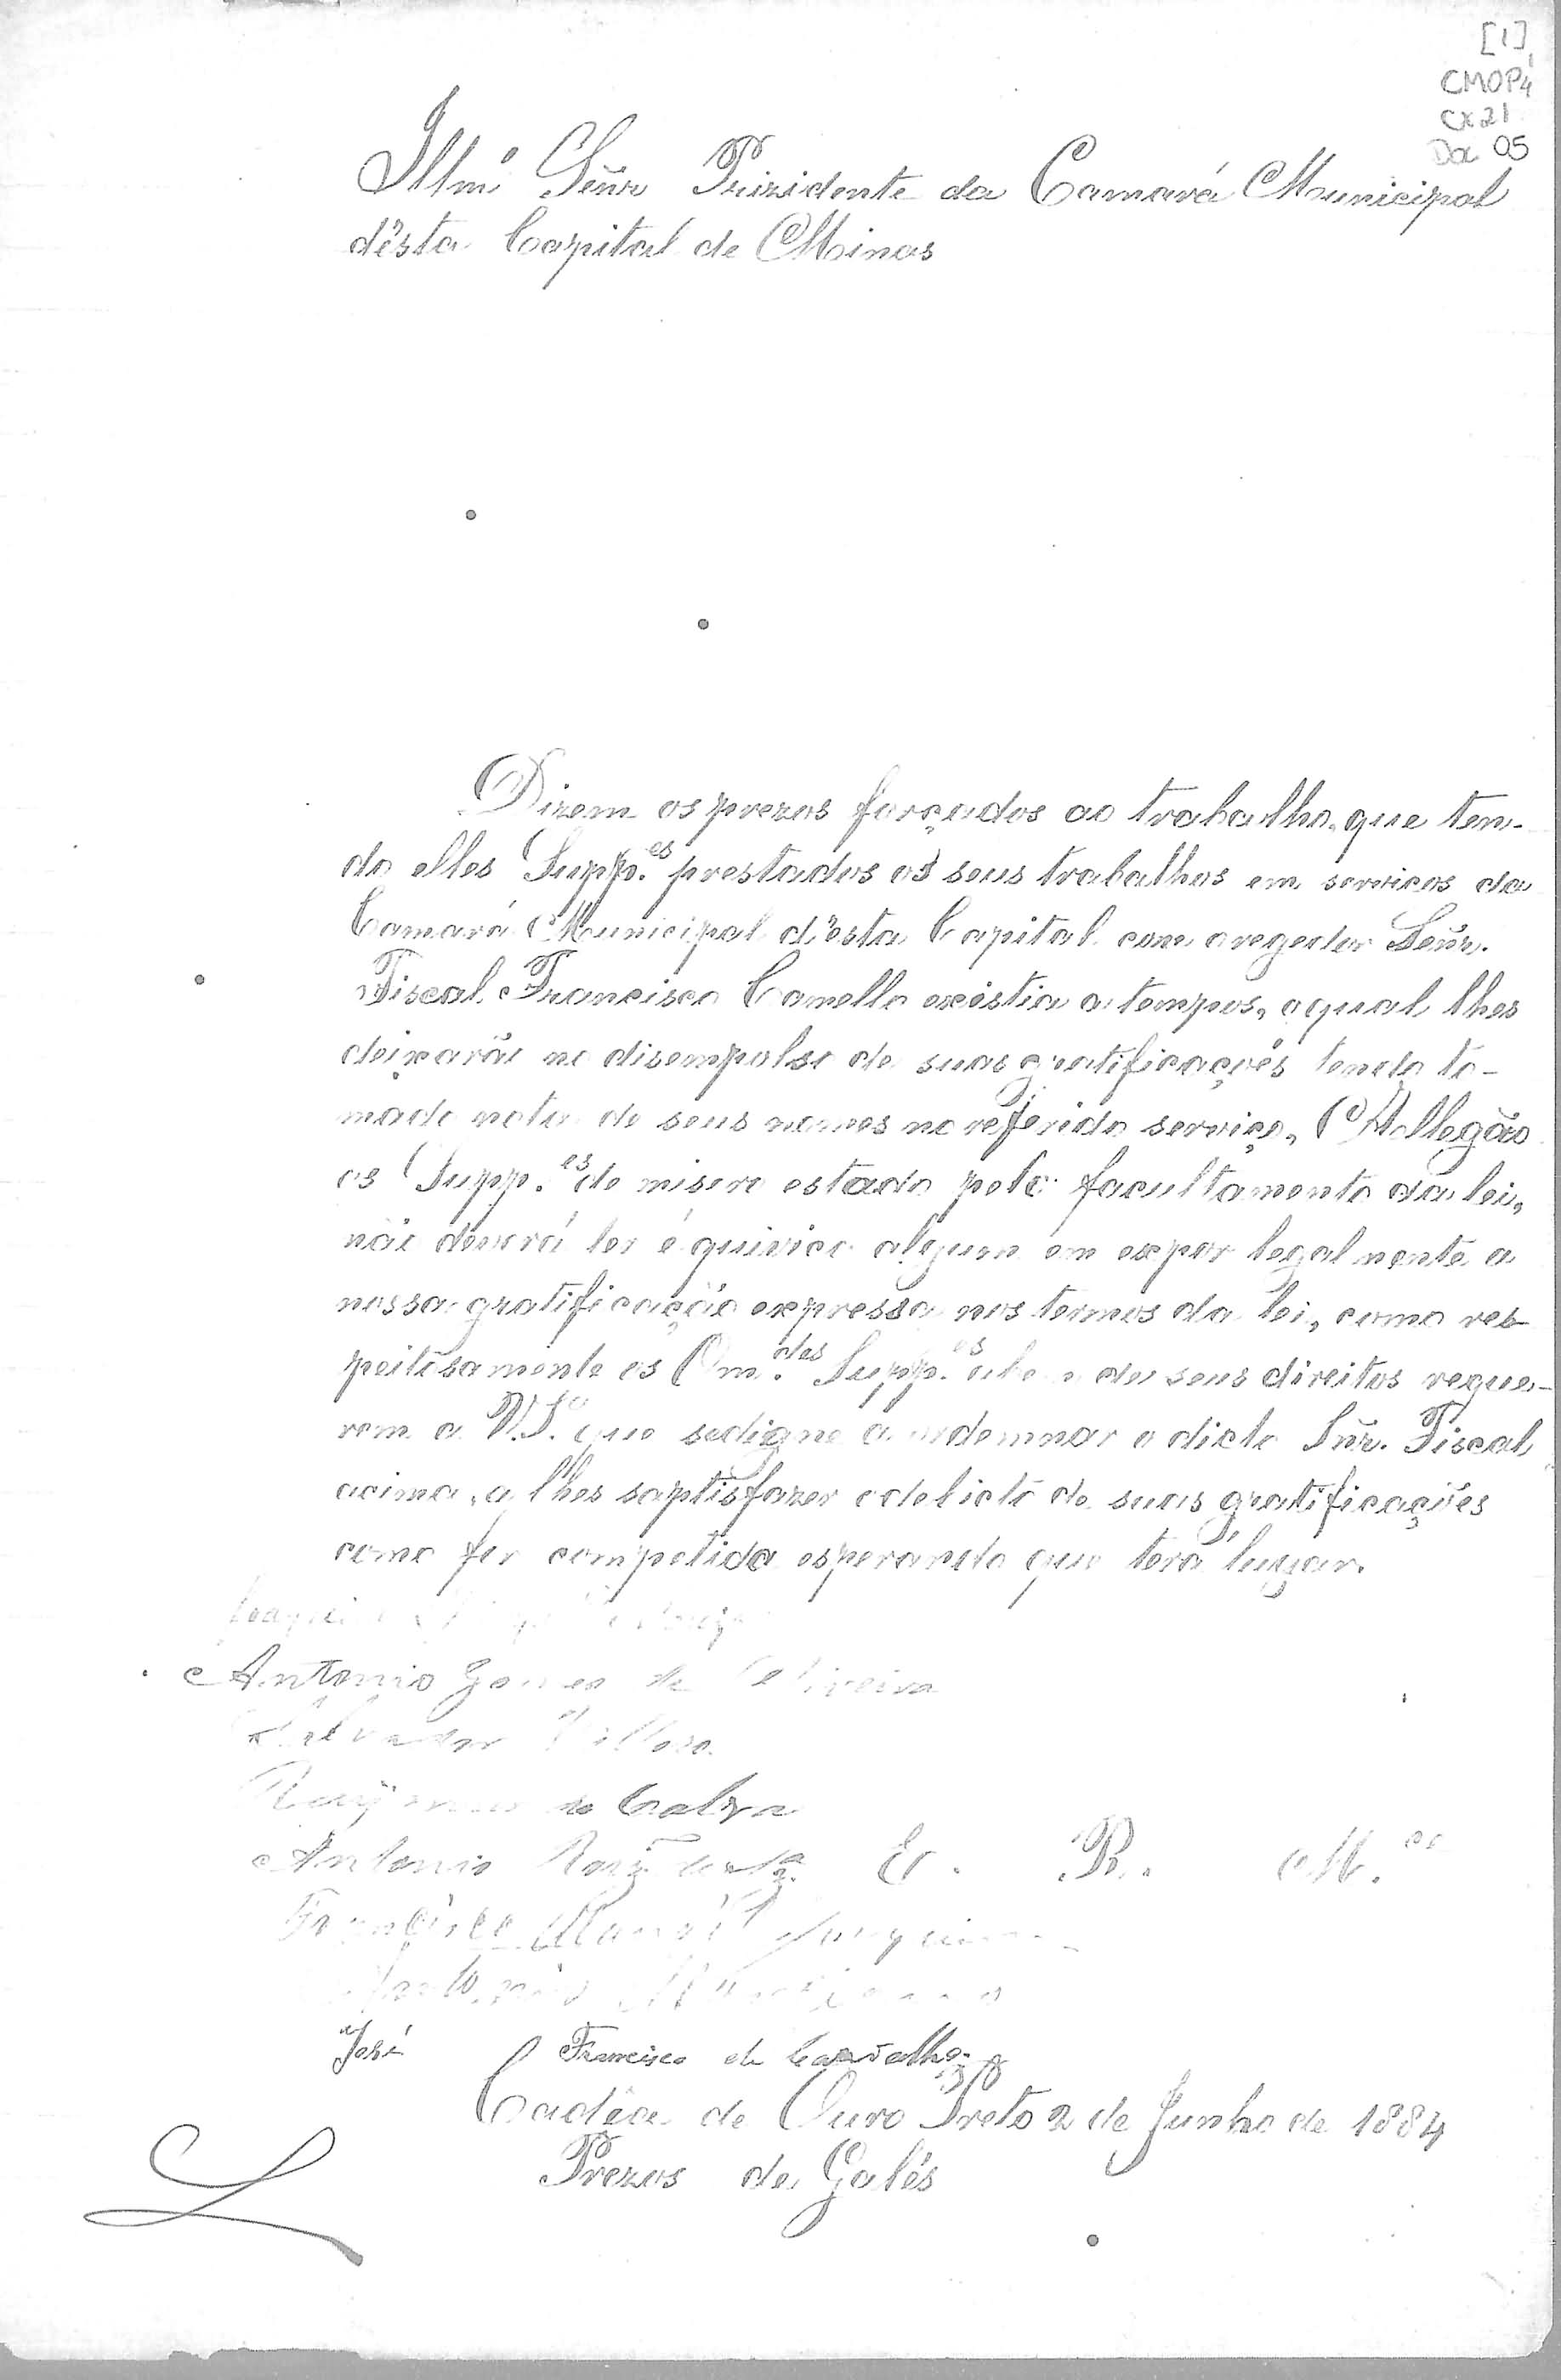 [1]
CMOP4
CX21
Doc 05
Illmº Señr Prizidente da Camará Municipal
d'ésta Capital de Minas
Dizem os prezos forçados ao trabalho, que ten-
do elles Supp.es prestados os seus trabalhos em serviços da
Camará Municipal d'ésta Capital com o regedor Señr.
Fiscal Francisco Camello existia a tempos, o qual lhes
deixarão no disempolso de suas gratificaçoés tendo to-
mado nota de seus nomes no referido serviço, Allegão
os Supp.es de misero estado pelo facultamento da lei,
não deverá ter é quivico algum em expor legal mente a
nossa gratificação expressa nos termos da lei, como res-
peitosamente os Om.des Supp.es de seus direitos reque-
rem a V.Sª que se digne a indemnar o dicto Snr. Fiscal
acima, a lhes saptisfazer o delicto de suas gratificações
como for competido esperando que terá lugar.
Joaquim
Antonio Gomes de Oliveira
Salvador
Raymundo Cabra
Antonio E. R. M.ce
Francisco Manoel Joaquim
Antonio
José Francisco de Carvalho
Cadêa de Ouro Preto 2 de Junho de 1884
Prezos de Galés